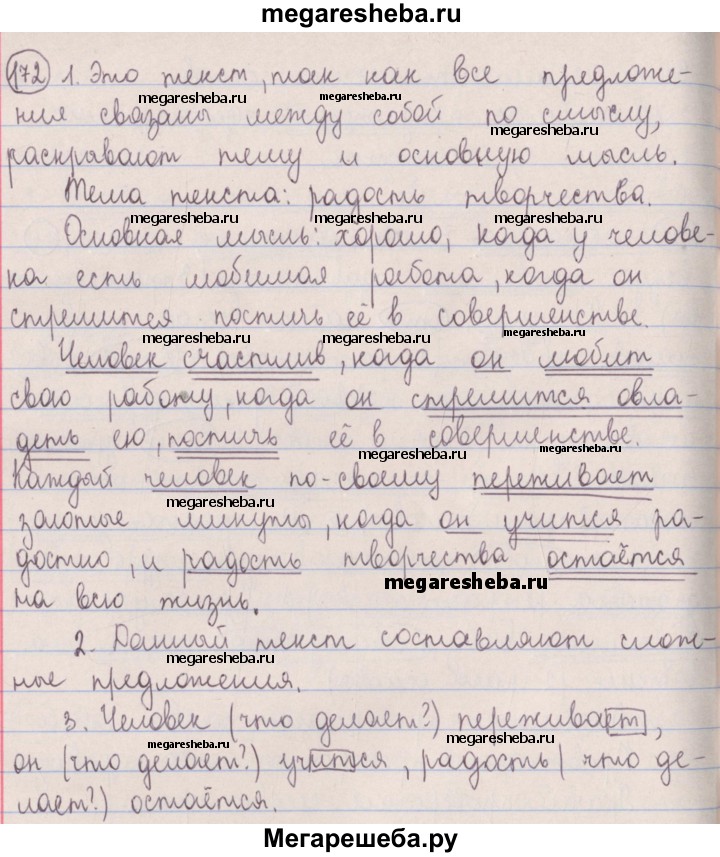 megaresheba.ru
172 1. Это текст, так как все предложе-
megaresheba.ru megaresheba.ru
ния связаны между собой по смыслу,
megaresheba.ru
раскрывают тему и основную мысль.
Тема текста: радость творчества.
megaresheba.ru megaresheba.ru megaresheba.ru
Основная мысль: хорошо, когда у челове-
ка есть любимая работа, когда он
стремится постичь её в совершенстве.
megaresheba.ru megaresheba.ru
Человек счастлив, когда он любит
megaresheba.ru
свою работу, когда он стремится овла-
деть ею, постичь её в совершенстве.
megaresheba.ru megaresheba.ru
Каждый человек по-своему переживает
megaresheba.ru
золотые минуты, когда он учится ра-
достно, и радость творчества остаётся
megaresheba.ru
на всю жизнь.
2. Данный текст составляют слож-
megaresheba.ru
ные предложения.
3. Человек (что делает?) переживает,
megaresheba.ru megaresheba.ru
он (что делает?) учится, радость (что де-
лает?) остаётся.
Мегарешеба.ру